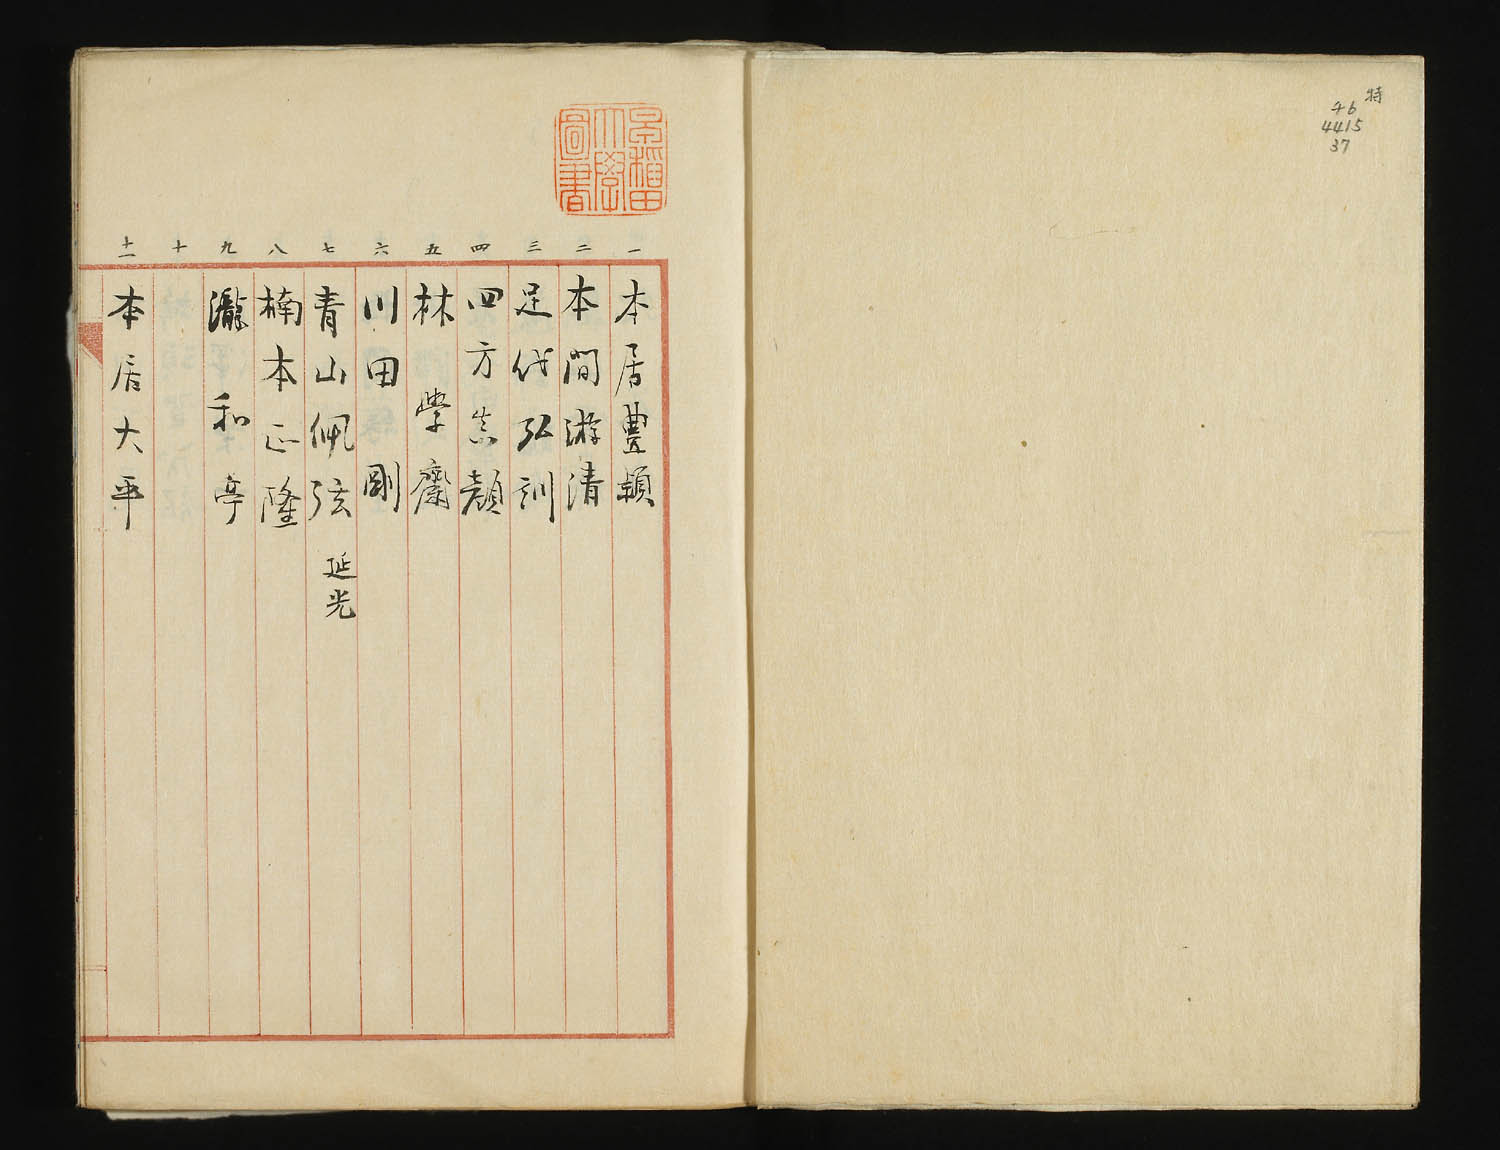 特
イ6
4415
37
早稲田
大學
圖書
一 二 三 四 五 六 七 八 九 十 十一
本居豊頴
本間游清
足代弘訓
四方真顔
林 学齋
川田剛
青山佩弦 延光
楠本正隆
瀧 和亭
本居大平